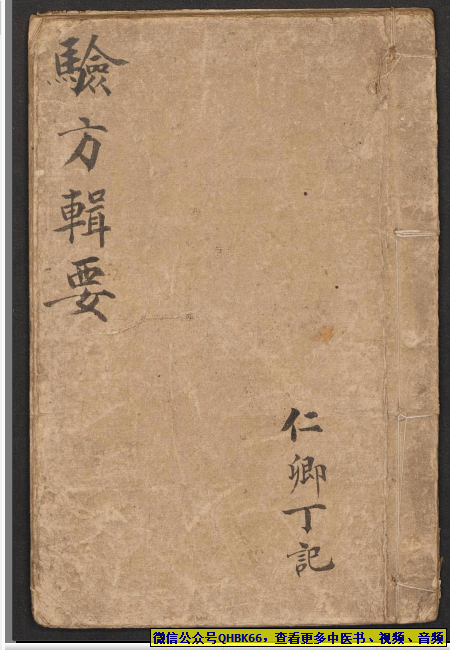 驗方輯要
仁卿丁記
微信公众号QHBK66，查看更多中医书、视频、音频